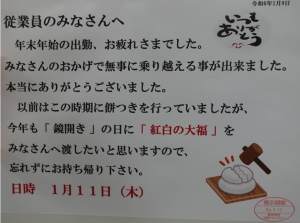 令和6年1月8日
いつも
ありがとう
従業員のみなさんへ
年末年始の出勤、お疲れさまでした。
みなさんのおかげで無事に乗り越える事が出来ました。
本当にありがとうございました。
以前はこの時期に餅つきを行っていましたが、
今年も「鏡開き」の日に「紅白の大福」を
みなさんへ渡したいと思いますので、
忘れずにお持ち帰り下さい。
日時 1月11日（木）